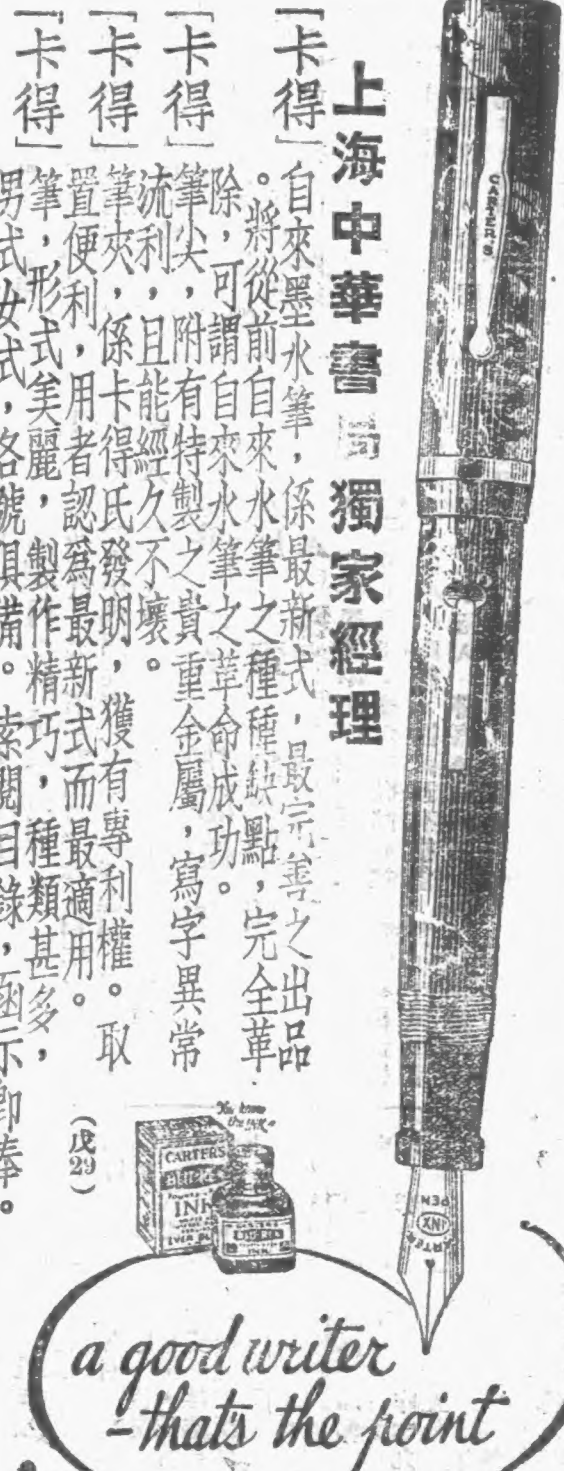 上海中華書局獨家經理
「卡得」自來墨水筆，係最新式，最完善之出品
。將從前自來水筆之種種缺點，完全革
除，可謂自來水筆之革命成功。
「卡得」筆尖，附有特製之貴重金屬，寫字異常
流利，且能經久不壞。
「卡得」筆夾，係卡得氏發明，獲有專利權。取
置便利，用者認爲最新式而最適用。
「卡得」筆，形式美麗，製作精巧，種類甚多，
男式女式，各號俱備。索閱目錄，函示卽奉。
（戊29）
CARTER'S
INX
PEN
You know
the INK
CARTER'S
INK
a good writer
-that's the point